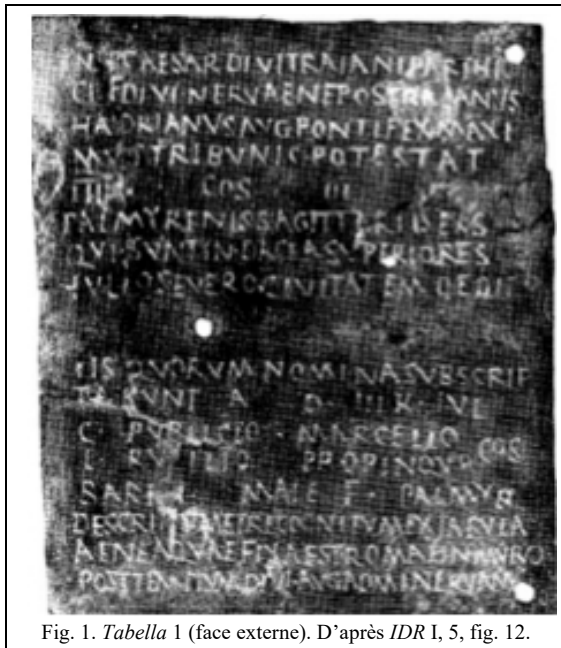 CAESAR DIVI TRAIANI PARTHI
CI F DIVI NERVAE NEPOS TRAIANVS
HADRIANVS AVG PONTIFEX MAXI
MVS TRIBVNIC·POTESTAT
IIII COS III
PALMYRENIS SAGITT
QVI·SVNT IN·DACIA SVPERIORE S
IVLIO SEVERO·CIVITATEM DEDIT
IIS QVORVM NOMINA SVBSCRIP
A D III K IVL
C PVBLICIO · MARCELLO COS
L RVTILIO PROPINQVO
MALE F · PALMYR
DESCRIPTVM ET RECOGNITVM EX TABVLA
AENEA QVAE FIXA EST ROMAE IN MVRO
POST TEMPLVM DIVI·AVG AD MINERVAM
Fig. 1. Tabella 1 (face externe). D'après IDR I, 5, fig. 12.